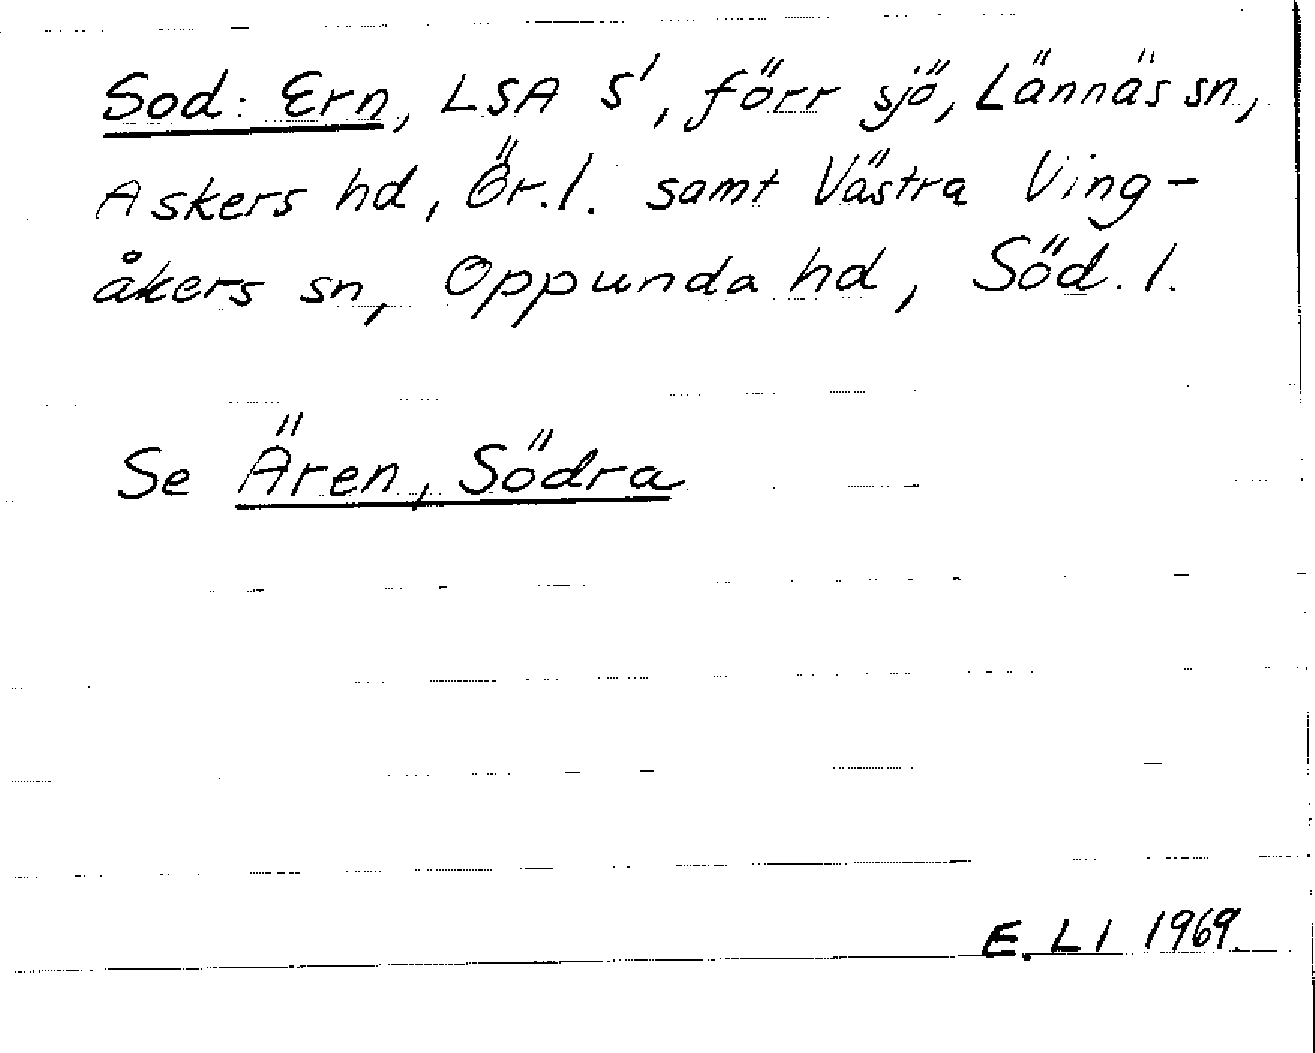 Sod: Ern, LSA S', förr sjö, Lännäs sn,
Askers hd, Ör.l. samt Västra Ving-
åkers sn, Oppunda hd, Söd. l.
Se Ären, Södra
E. LI 1969.